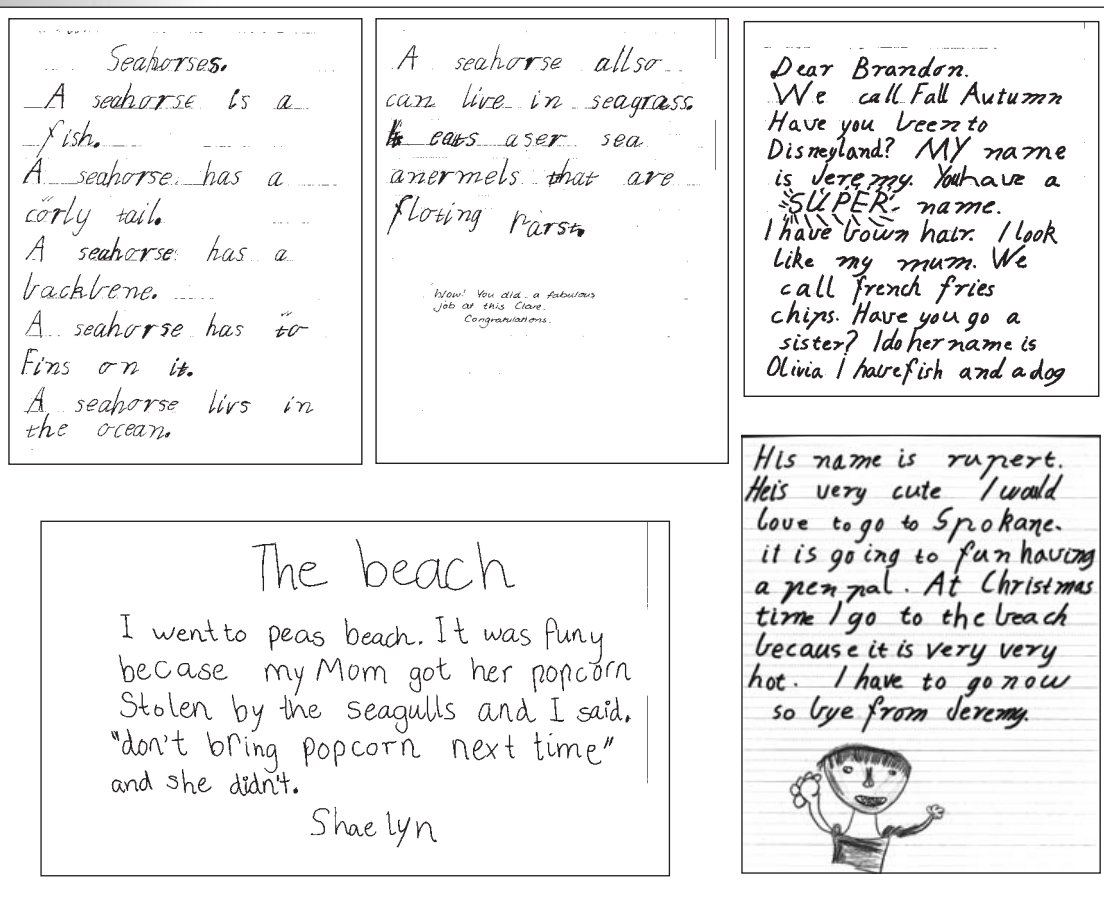 Seahorses.
A seahorse is a
fish.
A seahorse has a
corly tail.
A seahorse has a
backbene.
A seahorse has to
Fins on it.
A seahorse livs in
the ocean.
A seahorse allso
can live in seagrass.
It eats aser sea
anermels that are
floting parst.
Wow! You did a fabulous
job at this Clare.
Congratulations.
Dear Brandon.
We call Fall Autumn
Have you been to
Disneyland? MY name
is Jeremy. You have a
SUPER name.
I have bown hair. I look
like my mum. We
call french fries
chips. Have you go a
sister? I do her name is
Olivia I have fish and a dog
His name is rupert.
He is very cute I would
love to go to Spokane.
it is going to fun having
a pen pal. At Christmas
time I go to the beach
because it is very very
hot. I have to go now
so bye from Jeremy.
The beach
I went to peas beach. It was funy
becase my Mom got her popcorn
Stolen by the seagulls and I said.
"don't bring popcorn next time"
and she didn't.
Shaelyn